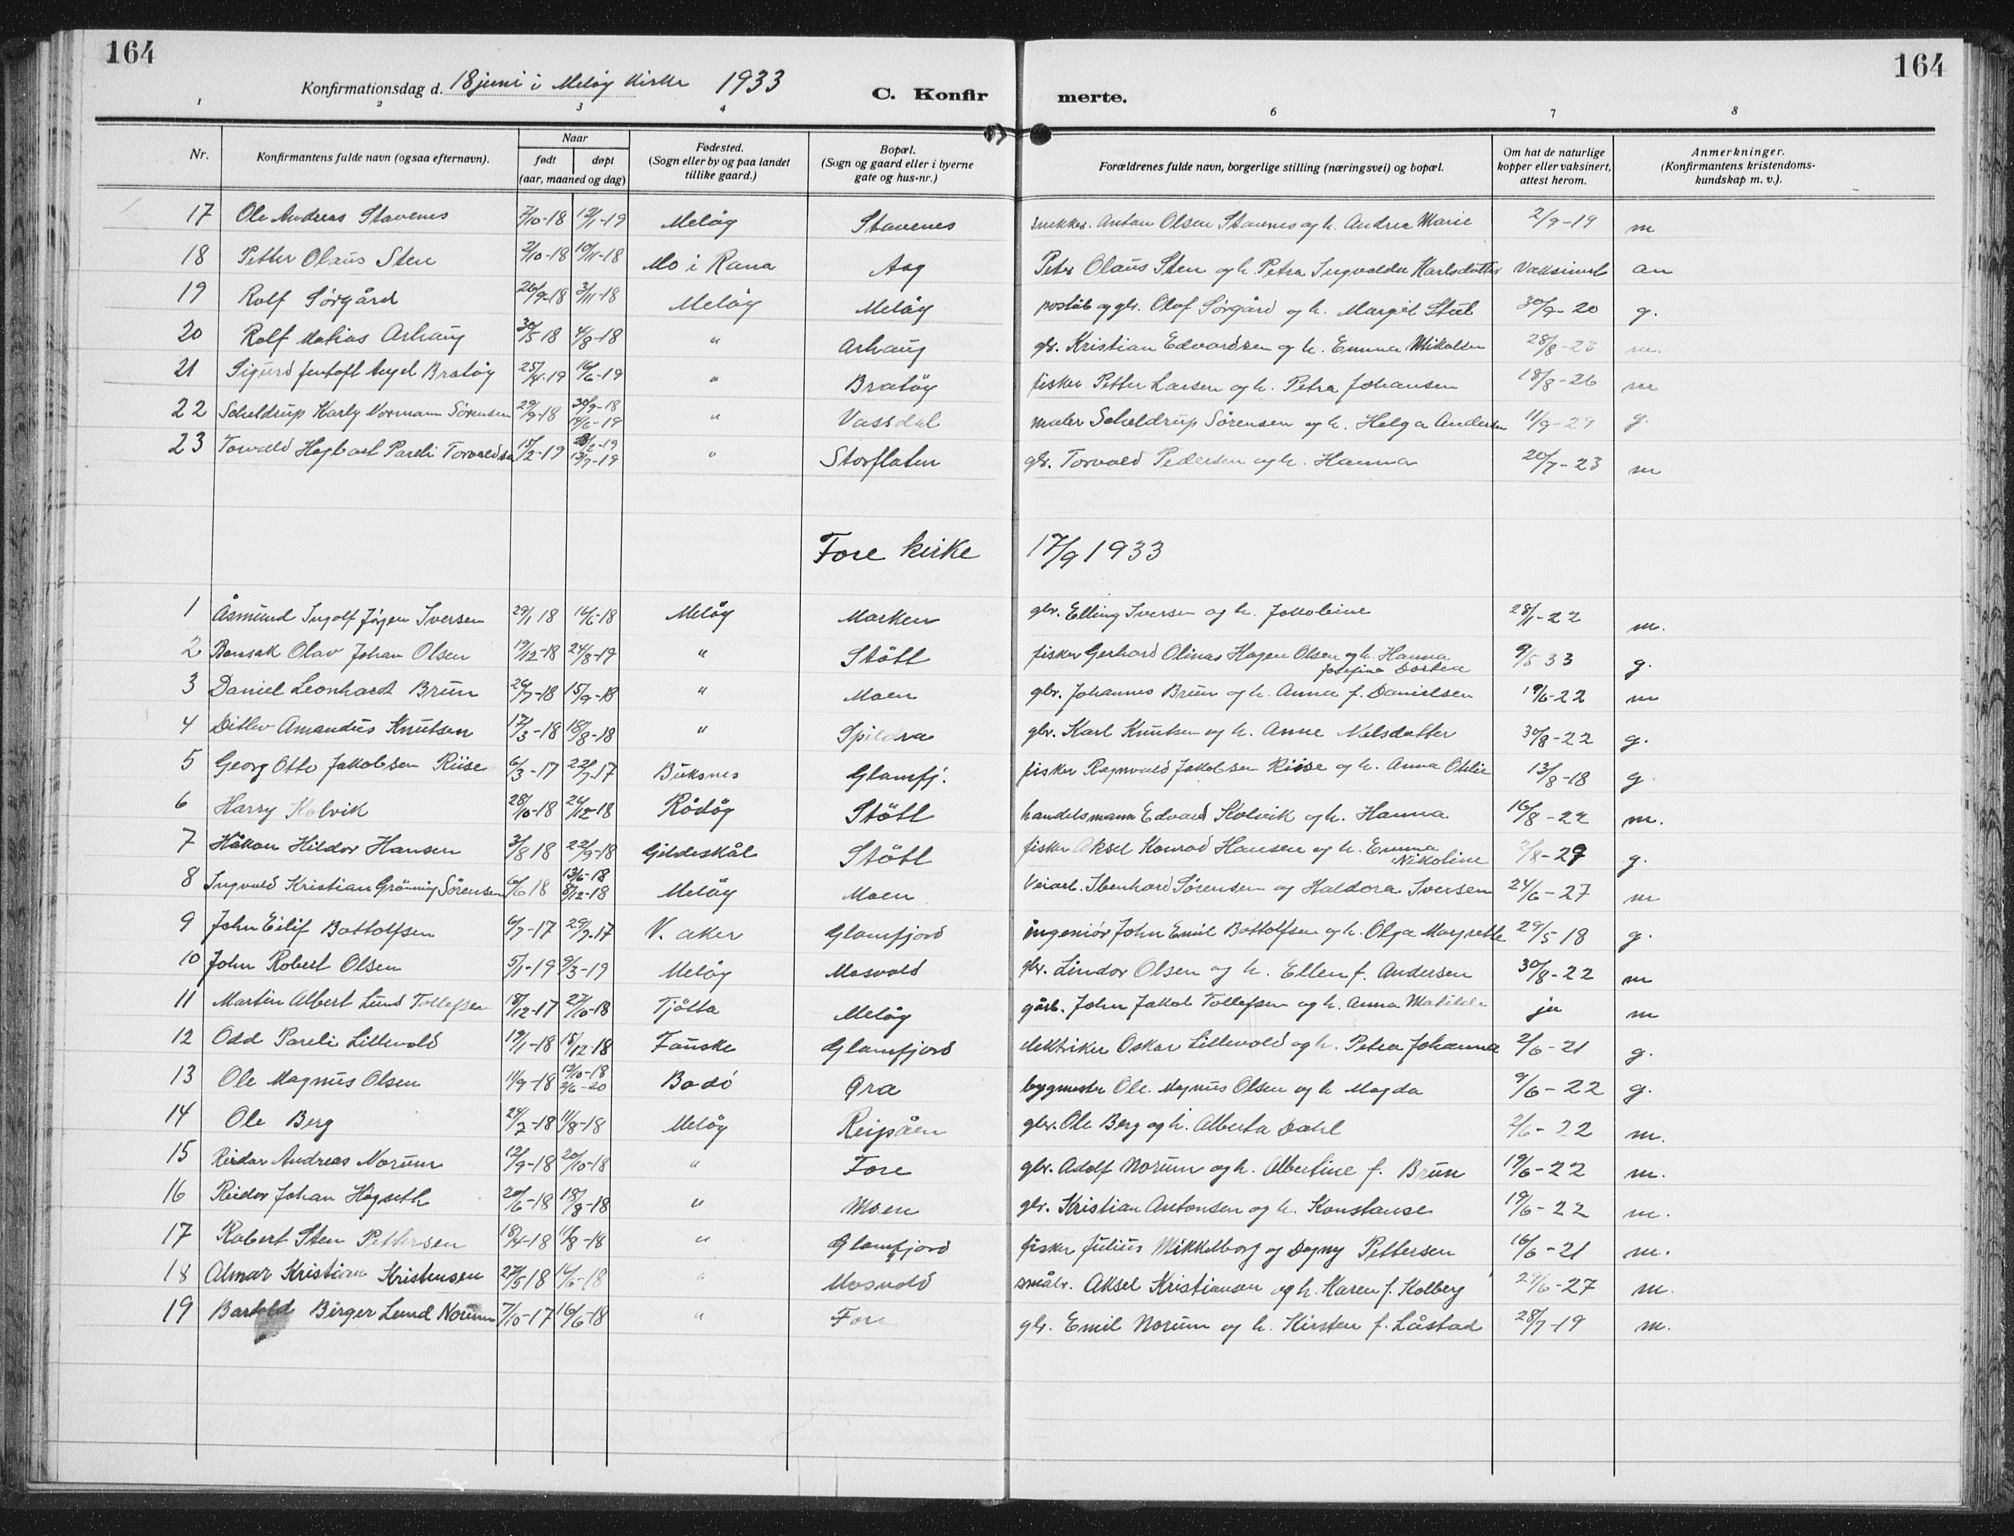 164
164
Konfirmationsdag d. 18 juni i Meløy kirke 1933
C. Konfir merte.
1 2 3 4 6 7 8
Nr. Konfirmantens fulde navn (ogsaa efternavn). Naar født døpt (aar, maaned og dag) Fødested. (Sogn eller by og paa landet tillike gaard.) Bopæl. (Sogn og gaard eller i byerne gate og hus-nr.) Forældrenes fulde navn, borgerlige stilling (næringsvei) og bopæl. Om hat de naturlige kopper eller vaksinert, attest herom. Anmerkninger. (Konfirmantens kristendoms- kundskap m. v.).
17 Ole Andreas Stavenes 7/10-18 12/1-19 Meløy Stavenes snekker. Anton Olsen Stavnes og h. Andrea Marie 2/9-19 m
18 Petter Olaus Sten 2/10-18 10/11-18 Mo i Rana Aag Peter Olaus Sten og h. Petra Ingvalda Karlsdatter Vaksinert an
19 Rolf Sørgård 26/9-18 3/11-18 Meløy Meløy og gbr. Olof Sørgård og h. Margit Stub 30/9-20 g.
20 Rolf Matias Arhaug 30/5 18 4/8-18 " Arhaug gbr. Kristian Edvardsen og h. Emma Mikalsen 28/8-23 m.
21 Sigurd Jentoft Bratøy 25/4-19 16/6-19 " Bratøy fisker Petter Larsen og h. Petra Johansen 18/8-26 m
22 Scheldrup Karly Normann Sørensen 29/9-18 30/9-18 14/6-19 " Vassdal maler Scheldrup Sørensen og h. Helga Andersen 11/9-29 g.
23 Torvald Hagbart Pareli Torvaldsen 15/2-19 13/7-19 " Storflaten gbr. Torvald Pedersen og h. Hanna 20/7-23 m
Fore kirke 17/9 1933
1 Åsmund Ingolf Jørgen Iversen 29/1 18 16/6-18 Meløy Marken gbr. Elling Iversen og h. Jakobine 28/1-22 m.
2 Bernsak Olav Johan Olsen 19/12-18 24/8-19 " Støtt fisker Gerhard Olinas Hagen Olsen og h. Hanna Josefine Dortea 9/5 33 g.
3 Daniel Leonhard Brun 26/7-18 15/9-18 " Moen gbr. Johannes Brun og h. Anna f. Danielsen 19/6-22 m
4 Ditlev Amandus Knutsen 17/3-18 18/8-18 " Spildra gbr. Karl Knutsen og h. Anne Nilsdatter 30/8-22 g.
5 Georg Otto Jakobsen Riise 6/3-17 22/7-17 Buksnes Glamfj. fisker Ragnvald Jakobsen Riise og h. Anna Otilie 13/8-18 g
6 Harry Kolvik 28/10-18 26/12-18 Rødøy Støtt handelsmann Edvard Kolvik og h. Hanna 16/8-22 m.
7 Håkon Hildor Hansen 3/8 18 22/9-18 Gildeskål Støtt fisker Aksel Konrad Hansen og h. Emma Nikoline 2/8-29 g.
8 Ingvald Kristian Grönning Sørensen 6/6 18 13/6-18 8/12-18 Meløy Moen Veiarb. Ibenhard Sørensen og Haldora Iversen 24/6-27 m
9 John Eilif Bottolfsen 6/7-17 29/7-17 V. aker Glomfjord ingeniör John Emil Bottolfsen og h. Olga Margrethe 29/5 18 g.
10 John Robert Olsen 5/1-19 9/3-19 Meløy Mosvold gbr. Lindor Olsen og h. Ellen f. Andersen 30/8-22 m
11 Martin Albert Lund Tollefsen 18/12-17 27/10-18 Tjøtta Meløy gårb. John Jakob Tollefsen og h. Anna Matilde ja m
12 Odd Pareli Lillevold 19/1-18 15/12-18 Fauske Glomfjord elektriker Oskar Lillevold og h. Petra Johanna 2/6-21 g.
13 Ole Magnus Olsen 11/9-18 12/10-18 2/6-20 Bodö Øra bygmester Ole Magnus Olsen og h Magda 9/6-22 g.
14 Ole Berg 24/2-18 11/8-18 Meløy Reipåen gbr. Ole Berg og h. Alberta Dahl 2/6-22 m.
15 Reidar Andreas Norum 12/9-18 20/10-18 " Fore gbr. Adolf Norum og h. Albertine f. Brun 19/6-22 m.
16 Reidar Johan Högseth 20/6-18 18/8-18 " Moen gbr. Kristian Antonsen og h. Konstanse 19/6-22 m.
17 Robert Sten Pettersen 18/4-18 11/8-18 " Glomfjord fisker Julius Mikkelborg og Dagny Pettersen 16/6-21 m.
18 Almar Kristian Kristensen 27/5 18 16/6-18 " Mosvold småbr. Aksel Kristiansen og h. Karen f. Kolberg 29/6-27 m.
19 Bartold Birger Lund Norum 7/10-17 16/6-18 " Fore gbr. Emil Norum og h. Kirsten f. Låstad 28/7-19 m.